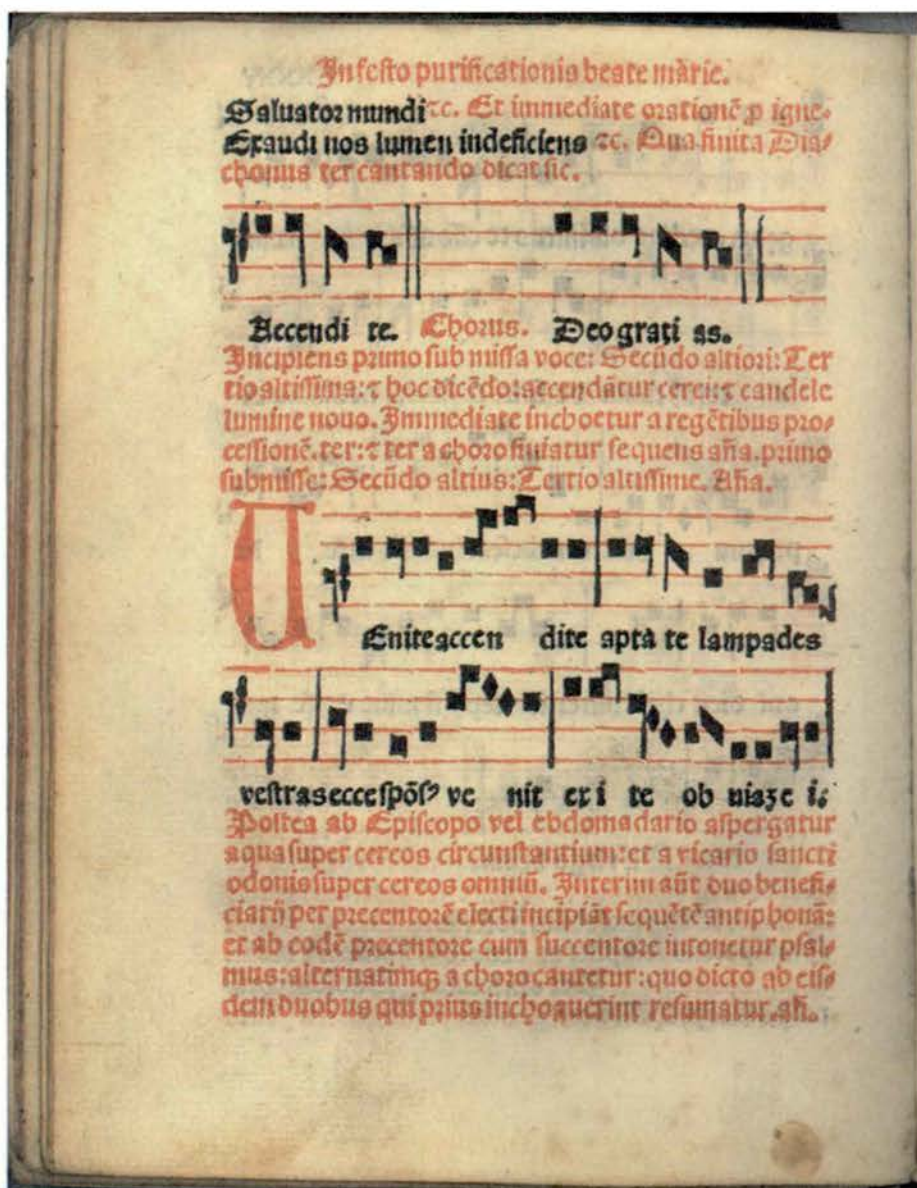 In festo purificationis beate marie.
Saluator mundi ⁊c. Et immediate orationē ꝓ igne.
Exaudi nos lumen indeficiens ⁊c. Qua finita Dia⸗
chonus ter cantando dicat sic.
Accendi te. Chorus. Deo grati as.
Incipiens primo sub missa voce: Secūdo altiori: Ter
tio altissima: ⁊ hoc dicēdo: accendātur cerei: ⁊ candele
lumine nouo. Immediate inchoetur a regētibus pro⸗
cessionē. ter: ⁊ ter a choro finiatur sequens aña. primo
submisse: Secūdo altius: Tertio altissime. Aña.
UEnite accen dite apta te lampades
vestras ecce spōsꝰ ve nit exi te ob uiaʒ e i.
Postea ab Episcopo vel ebdomadario aspergatur
aqua super cereos circunstantium: et a vicario sancti
odonis super cereos omniū. Interim aūt duo benefi⸗
ciarij per precentorē electi incipiāt sequētē antiphonā:
et ab eodē precentore cum succentore intonetur psal⸗
mus: alternatimqꝫ a choro cantetur: quo dicto ab eis⸗
dem duobus qui prius inchoauerint resumatur. añ.